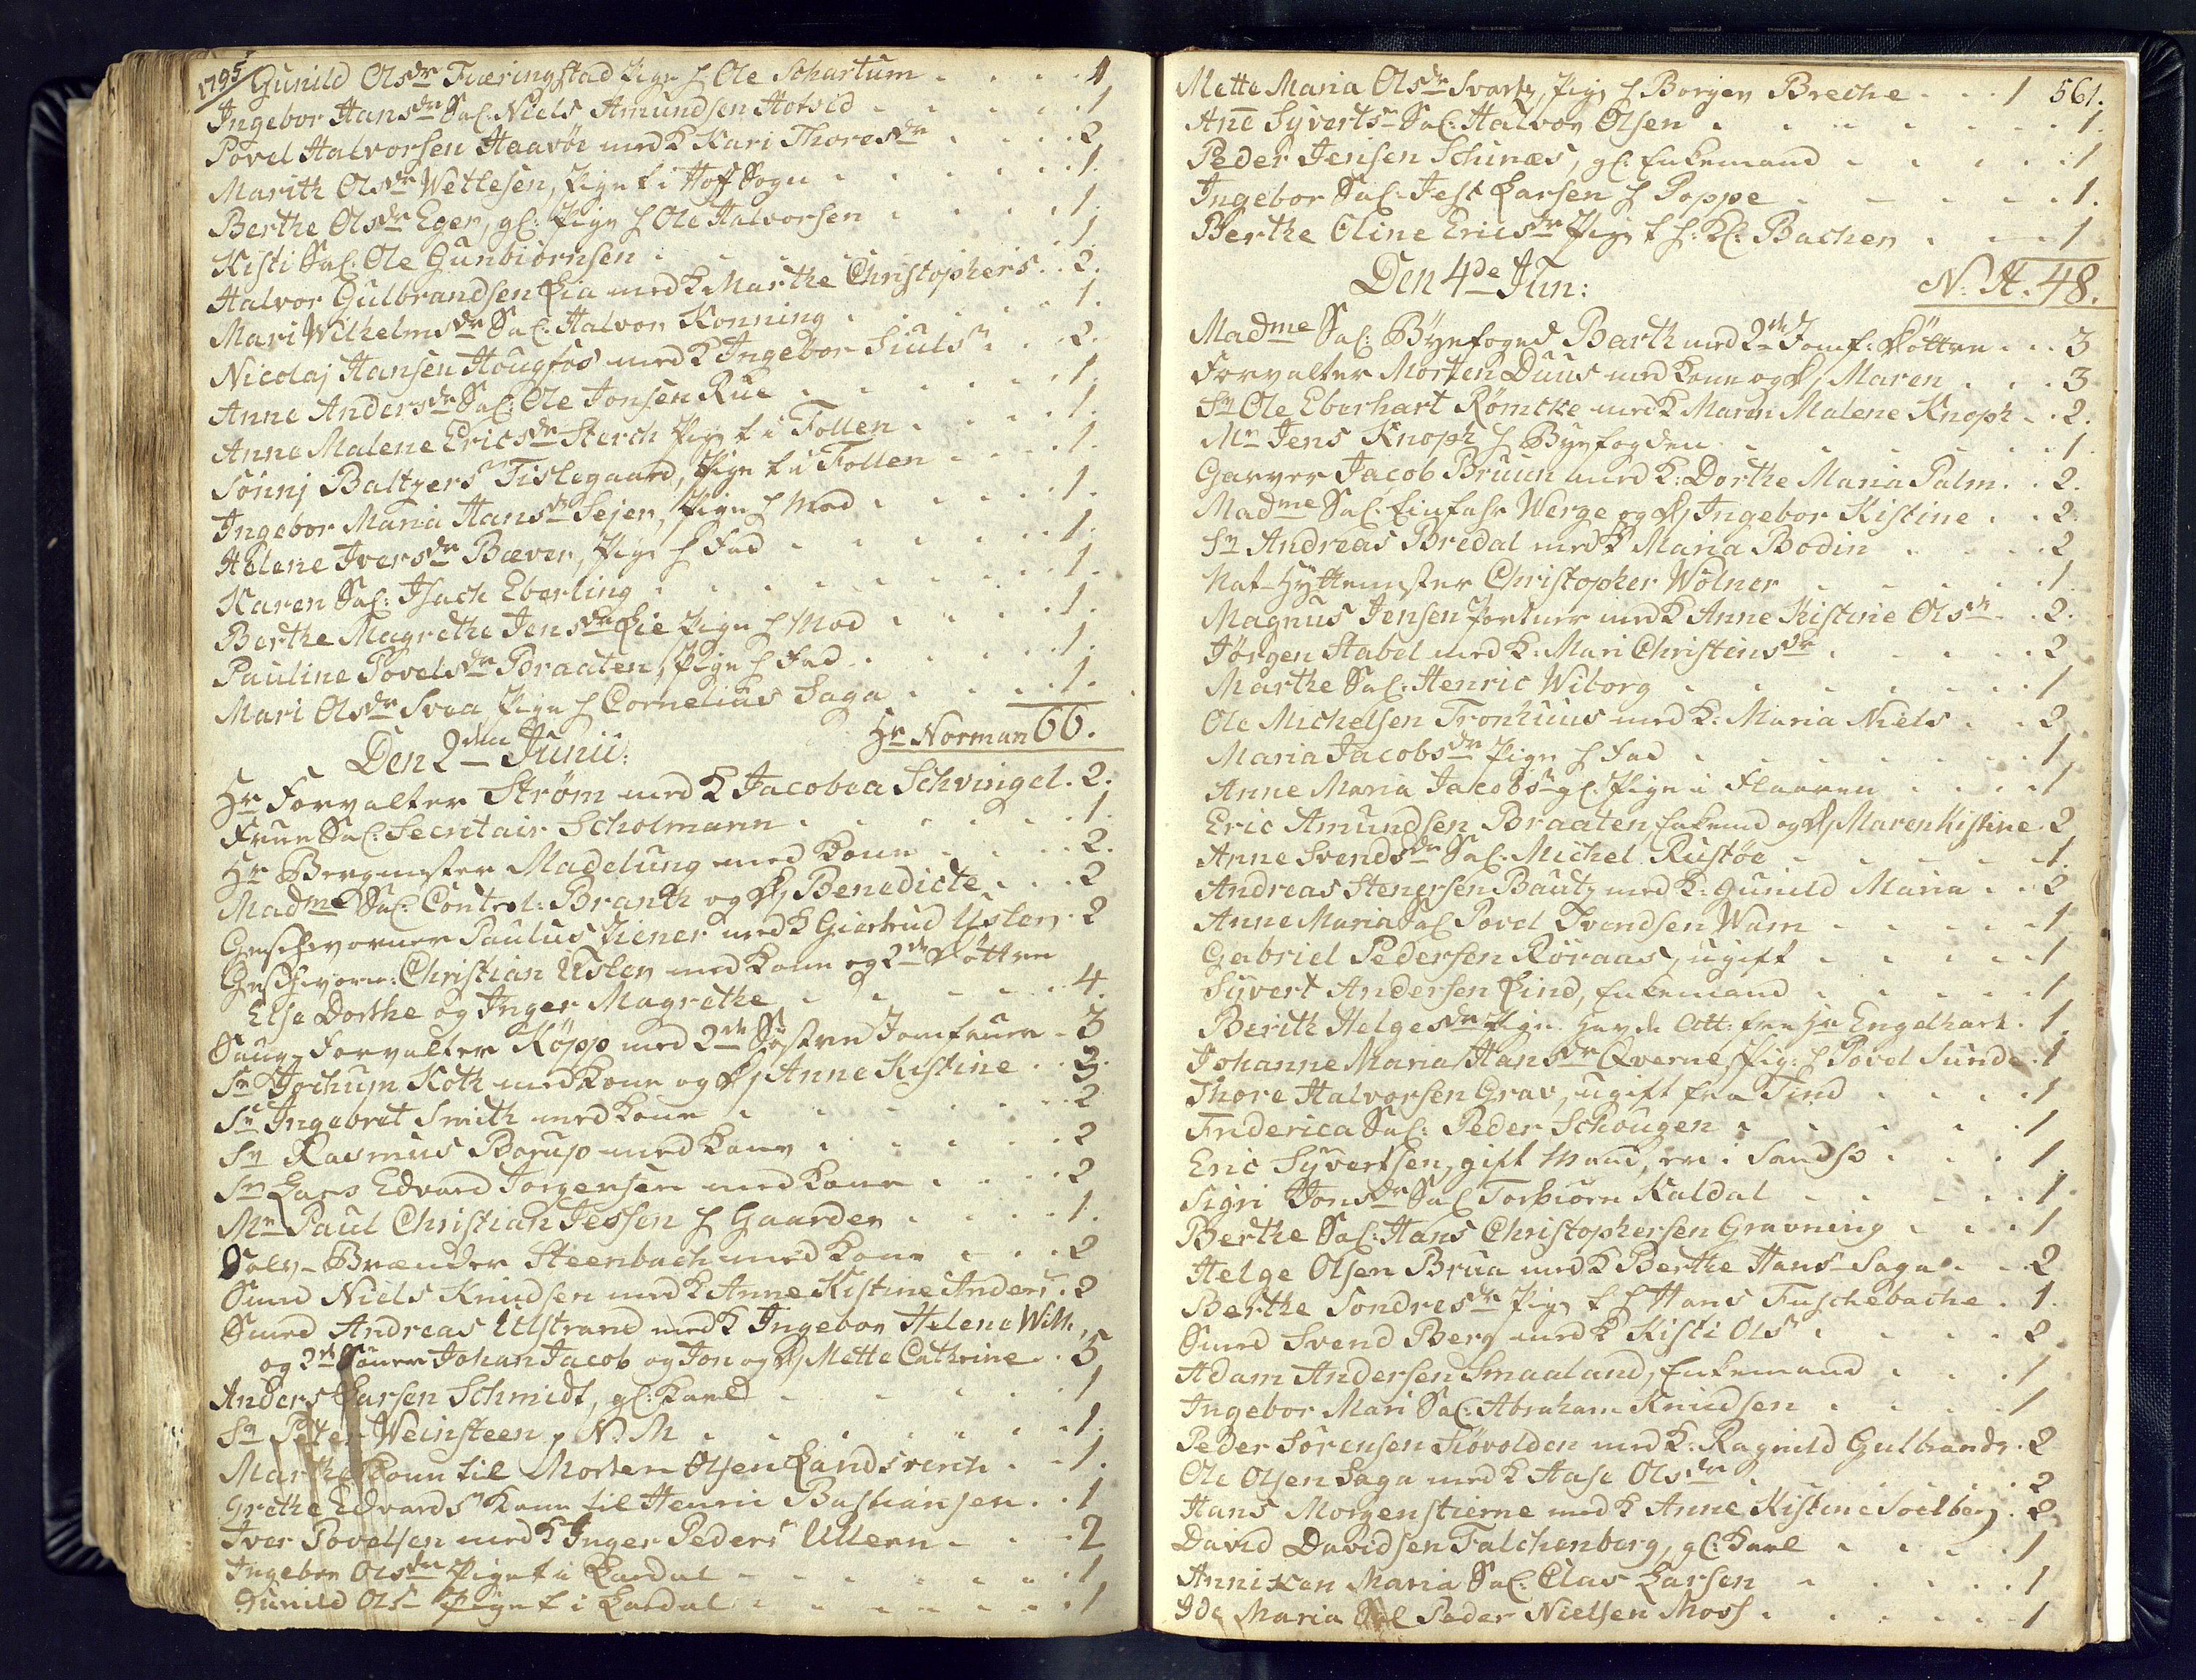 1795
Gunild Olsdr Fværingstad Pige h Ole Schartum . . . . 1
Ingebor Hansdr Sal. Niels Amundsen Hotvid . . . . . 1
Povel Halvorsen Haavøe med K Kari Thoresdr . . . . 2
Marith Olsdr Wetlesen, Pige f i Hoff Sogn . . . . . 1.
Berthe Olsdr Eger, gl: Pige h Ole Halvorsen . . . . 1.
Kisti Sal. Ole Gunbiørnsen . . . . . . 1
Halvor Gulbrandsen Lia med K Marthe Christophers . . 2.
Mari Wilhelmsdr Sal. Halvor Konning . . . . . 1.
Nicolaj Hansen Hougfos med K Ingebor Siuls . . . 2.
Anne Andersdr Sal: Ole Jonsen Rue . . . . . 1.
Anne Malene Ericsdr Sterch Pige f i Follen . . . . 1.
Sønnj Baltzers Fislegaard, Pige f i Follen . . . . 1.
Ingebor Maria Hansdr Sejer, Pige h Mod . . . . . 1.
Helene Iversdr Bæver, Pige h Fad . . . . . . 1.
Karen Sal: Isach Eberling . . . . . . . 1.
Berthe Magrethe Jensdr Lie Pige h Mod . . . . 1.
Pauline Povelsdr Braaten, Pige h Fad . . . . . 1.
Mari Olsdr Svea Pige h Cornelius Saga . . . . 1.
Hr Norman 66.
Den 2den Junii:
Hr Forvalter Strøm med K Jacobea Schvingel . 2.
Frue Sal: Secritair Scholmann . . . . . . 1.
Hr Bergmester Madelung med Kone . . . . 2.
Madme Sal: Control: Branth og D Benedicte . . . 2
Geschworner Paulus Ziener med K Giertrud Usler . 2
Geschworn: Christian Usler med Kone og 2de Døttre
Else Dorthe og Inger Magrethe . . . . . 4.
Saug-Forvalter Køpp med 2de Søstre Jomfruer - 3
Sr Jochum Koth med Kone og D Anne Kistine . . 3.
Sr Ingebret Smith med Kone . . . . . . 2
Sr Rasmus Borup med Kone . . . . . . 2
Sr Lars Edvard Torgersen med Kone . . . . 2
Mr Paul Christian Jessen h Gaarder . . . . 1.
Sølv-Brænder Steenbach med Kone . . . . 2
Smed Niels Knudsen med K Anne Kistine Anders . 2
Smed Andreas Ulstrand med K Ingebor Helene Wilh.
og 2de Sønner Johan Jacob og Jon og D Mette Cathrine . 5
Anders Larsen Schmidt, gl: Karl . . . . . . 1
Sr Peter Weinsteen, N. M . . . . . . . 1.
Marthe Kone til Morten Olsen Landsverch . . 1.
Grethe Edvards Kone til Henric Bastiansen . . 1
Iver Povelsen med K Inger Peders Ulleren . . . 2
Ingebor Olsdr Pige f i Lardal . . . . . . . 1
Gunild Ols Pige f i Lardal . . . . . . . 1
561.
Mette Maria Olsdr Svartz, Pige h Borger Breche . . . 1
Ane Syvertsr Sal: Halvor Olsen . . . . . . . 1.
Peder Jensen Schinæs, gl. Enkemand . . . . . 1
Ingebor Sal. Jest Larsen h Poppe . . . . . . 1.
Berthe Oline Ericsdr Pige f h: Kl: Bachen . . . . 1
N. H. 48.
Den 4de Jun:
Madme Sal: Byefoged Barth med 2de Jomf. Døttre . . . 3
Forvalter Morten Duus med Kone og D Maren . . . 3
Sr Ole Eberhart Rømcke med K Maren Malene Knoph . . 2.
Mr Jens Knoph h Byefogden . . . . . . . 1.
Garver Jacob Bruun med K: Dorthe Maria Palm . . 2.
Madme Sal. Einfahr Werge og D Ingebor Kistine . . 2
Sr Andreas Bredal med K Maria Bodin . . . . 2
Nat-Hyttemester Christopher Wølner . . . . . 1.
Magnus Jensen Portner med K Anne Kistine Olsdr . . 2.
Jørgen Stabel med K: Mari Christensdr . . . . . 2
Marthe Sal: Henric Wiborg . . . . . . . 1
Ole Michelsen Tronhuus med K: Maria Niels . . . 2
Maria Jacobsdr Pige h Fad . . . . . . . 1
Anne Maria Jacobs gl. Pige i Flaaren . . . . 1
Eric Amundsen Braaten Enkemd og D Maren Kistine . 2
Anne Svendsdr Sal: Michel Rustøe . . . . . . 1.
Andreas Stenersen Bautz med K: Gunild Maria . . 2
Anne Maria Sal Povel Svendsen Wam . . . . . 1
Gabriel Pedersen Røraas, ugift . . . . . 1
Syvert Andersen Lind, Enkemand . . . . . 1
Berith Helgesdr Pige. Havde Att: fra Hr Engelhart . 1.
Johanne Maria Hansdr Qverne, Pig: h Povel Sunde . 1
Thore Halvorsen Grav, ugift fra Tind . . . . 1
Friderica Sal: Peder Schougen . . . . . . 1
Eric Syvertsen, gift Mand, er i Sands . . . . 1
Sigri Jonsdr Sal Torbiørn Kaldal . . . . . 1.
Berthe Sal. Hans Christophersen Gravning . . . 1
Helge Olsen Brua med K Berthe Hans Saga . . . 2
Berthe Sondresdr Pige f h Hans Fuschebache . 1.
Smed Svend Berg med K Kisti Ols . . . . . 2
Adam Andersen Smaaland, Enkemand . . . . 1
Ingebor Mari Sal: Abraham Knudsen . . . . 1
Peder Sørensen Siøvolden med K: Ragnild Gulbrands . 2
Ole Olsen Saga med K Aase Olsdr . . . . . . 2
Hans Morgenstierne med K Anne Kistine Soelberg . 2
David Davidsen Falchenberg, gl: Karl . . . . . 1
Anniken Maria Sal: Clas Larsen . . . . . 1
Ide Maria Sal Peder Nielsen Moss . . . . . . 1